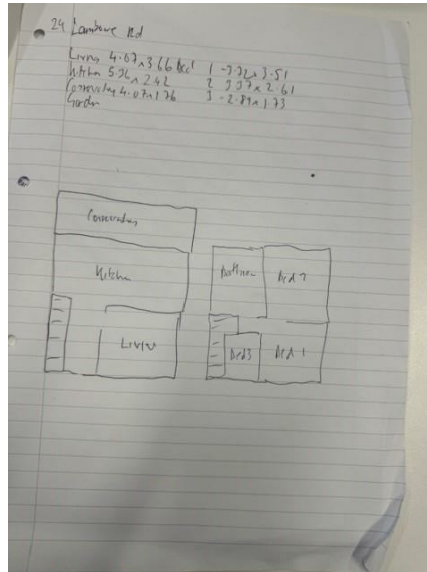 24 Rd
Living 4.07 x 3.66 Bed 1 - 3.72 x 3.51
Kitchen 5.96 x 2.42 2 3.37 x 2.61
Conservatory 4.07 x 1.76 3 - 2.89 x 1.73
Garden
Conservatory
Kitchen
Living
Bathroom
Bed 2
Bed 3
Bed 1